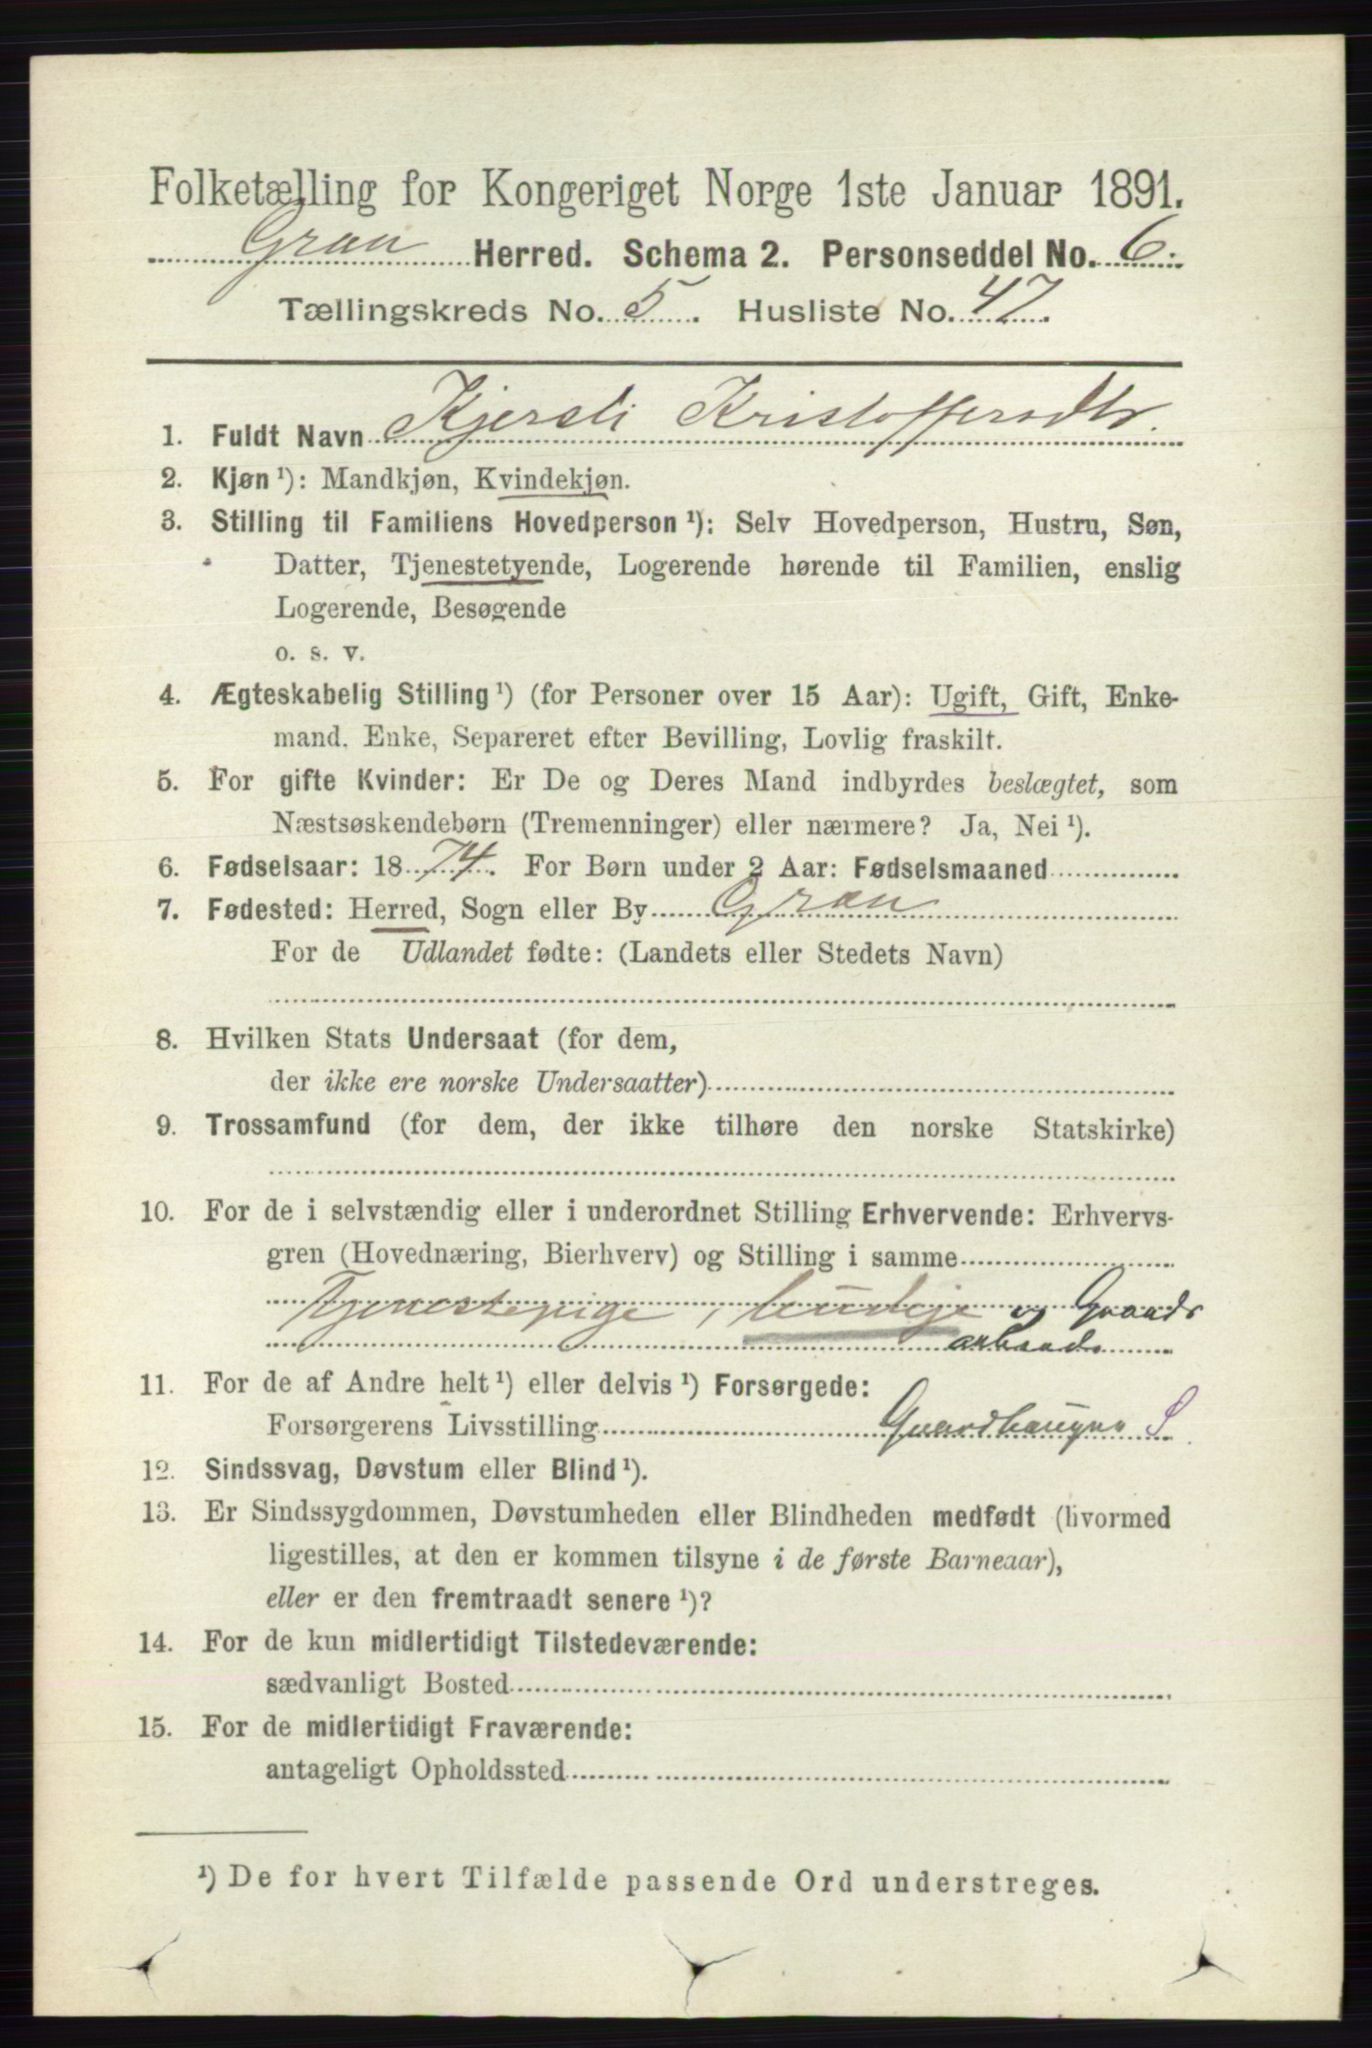 Folketælling for Kongeriget Norge 1ste Januar 1891.
Gran Herred. Schema 2. Personseddel No. 6.
Tællingskreds No. 5. Husliste No. 47.
1. Fuldt Navn Kjersti Kristoffersdtr.
2. Kjøn ¹): Mandkjøn, Kvindekjøn.
3. Stilling til Familiens Hovedperson ¹): Selv Hovedperson, Hustru, Søn,
Datter, Tjenestetyende, Logerende hørende til Familien, enslig
Logerende, Besøgende
o. s. v.
4. Ægteskabelig Stilling ¹) (for Personer over 15 Aar): Ugift, Gift, Enke-
mand, Enke, Separeret efter Bevilling, Lovlig fraskilt.
5. For gifte Kvinder: Er De og Deres Mand indbyrdes beslægtet, som
Næstsøskendebørn (Tremenninger) eller nærmere? Ja, Nei ¹).
6. Fødselsaar: 1874. For Børn under 2 Aar: Fødselsmaaned
7. Fødested: Herred, Sogn eller By Gran
For de Udlandet fødte: (Landets eller Stedets Navn)
8. Hvilken Stats Undersaat (for dem,
der ikke ere norske Undersaatter)
9. Trossamfund (for dem, der ikke tilhøre den norske Statskirke)
10. For de i selvstændig eller i underordnet Stilling Erhvervende: Erhvervs-
gren (Hovednæring, Bierhverv) og Stilling i samme
Tjenestepige, budeje og Gaards
arbeide
11. For de af Andre helt ¹) eller delvis ¹) Forsørgede:
Forsørgerens Livsstilling S
12. Sindssvag, Døvstum eller Blind ¹).
13. Er Sindssygdommen, Døvstumheden eller Blindheden medfødt (hvormed
ligestilles, at den er kommen tilsyne i de første Barneaar),
eller er den fremtraadt senere ¹)?
14. For de kun midlertidigt Tilstedeværende:
sædvanligt Bosted
15. For de midlertidigt Fraværende:
antageligt Opholdssted
¹) De for hvert Tilfælde passende Ord understreges.